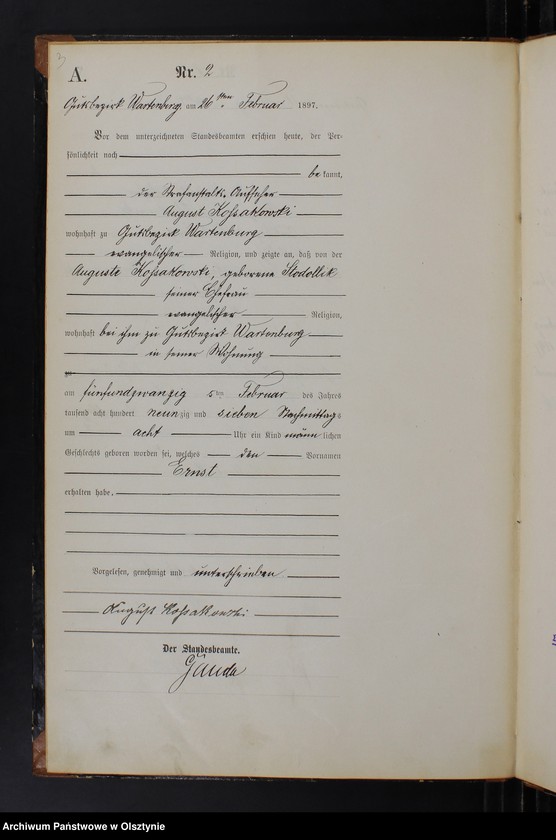 3
A.
Nr. 2
Gutsbezirk Wartenburg, am 26 ten Februar 1897.
Vor dem unterzeichneten Standesbeamten erschien heute, der Per-
sönlichkeit nach
be kannt,
der Strafanstalts-Aufseher
August Kossakowski
wohnhaft zu Gutsbezirk Wartenburg
evangelischer Religion, und zeigte an, daß von der
Auguste Kossakowski, geborene
seiner Ehefrau
evangelischer Religion,
wohnhaft bei ihm zu Gutsbezirk Wartenburg
in seiner Wohnung
zu
am fünfundzwanzig sten Februar des Jahres
tausend acht hundert neunzig und sieben Nachmittags
um acht Uhr ein Kind männlichen
Geschlechts geboren worden sei, welches den Vornamen
Ernst
erhalten habe,
Vorgelesen, genehmigt und unterschrieben
August Kossakowski
Der Standesbeamte.
Archiwum Państwowe w Olsztynie